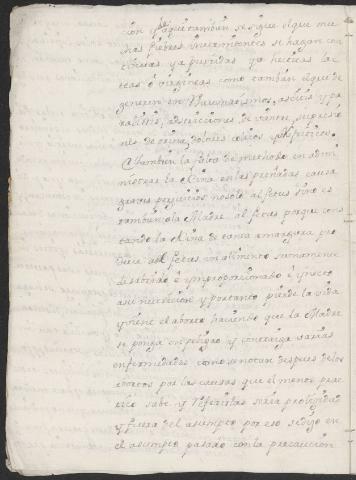 cion y de aqui tambien se sigue el que mu
chas fiebres intermitentes se hagan con
tinuas ya putridas ya hecticas lac
teas ô viagineas como tambien el que de
generen en Rheumatismos, ascitis y pa
ralisis, adstricciones de vientre, supresio
nes de orina, dolores colicos y
Tambien la falta de methodo en admi
nistrar la Kina en las preñadas causa
graves perjuicios no solo al fetus sino es
tambien a la Madre al fetus porque cons
tando la Kina de tanta amargura pro
duce al fetus un alimento sumamente
desabrido ê ymproporcionado ê yndo
a su nutricion y por tanto pierde la vida
y viene el aborto haciendo que la Madre
se ponga en peligro y contraiga varias
enfermedades como se notan despues de los
abortos por las causas que el menor prac
tico sabe y referirlas seria prolixidad
y fuera del asumpto por eso se dijo en
el asumpto pasado con la precaucion